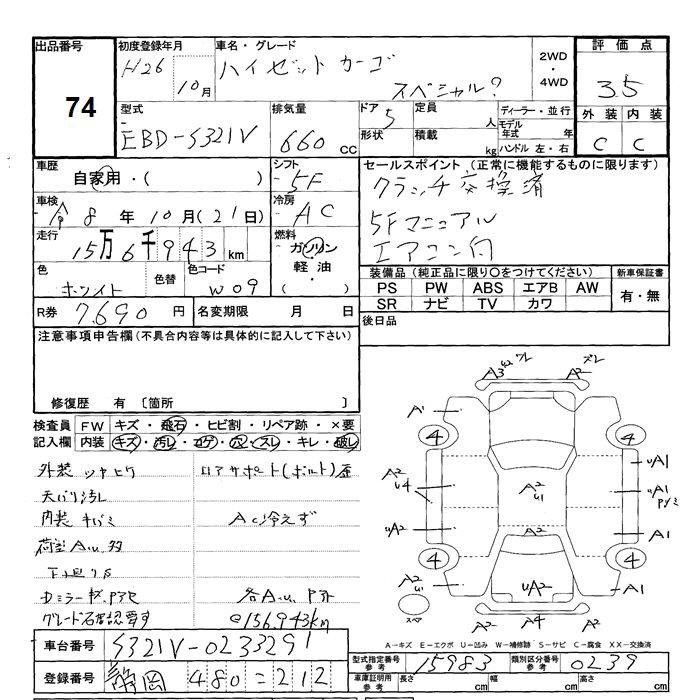 出品番号
74
初度登録年月
H26 10月
車名・グレード
ハイゼットカーゴ
スペシャル?
2WD
・
4WD
評価点
3.5
外装 内装
C C
型式
EBD-S321V
排気量
660 cc
ドア 5
形状
定員 人
積載 kg
ディーラー・並行
モデル年式 年
ハンドル 左・右
車歴
自家用・( )
シフト
5F
車検
令8年10月(21日)
冷房
AC
走行
15万6千943km
燃料
ガソリン
軽油・
( )
色
ホワイト
色替
色コード
W09
R券 7,690円
名変期限 月 日
セールスポイント(正常に機能するものに限ります)
クラッチ交換済
5Fマニュアル
エアコン付
装備品(純正品に限り○をつけてください)
新車保証書
PS PW ABS エアB AW
SR ナビ TV カワ
有・無
後日品
注意事項申告欄(不具合内容等は具体的に記入して下さい)
修復歴 有 〔箇所 〕
検査員記入欄
FW キズ・飛石・ヒビ割・リペア跡・×要
内装 キズ・汚レ・コゲ・穴・スレ・キレ・破レ
外装 ツヤヒケ
天バリ汚レ
内装 キバミ
下廻りS
AC冷えず
グレード石確認要す
@156,943km
A3 A2
A1
4 4
A2 U4
UA2
A2 U1
A2
UA2
UA1
UA1
A1
A1
4 4
A2
A2 A4 A2
A－キズ E－エクボ U－凹み W－補修跡 S－サビ C－腐食 XX－交換済
車台番号 S321V-0233291
登録番号 静岡 480 こ 212
型式指定番号 参考 15983
類別区分番号 参考 0239
車庫証明用 参考
長さ cm 幅 cm 高さ cm